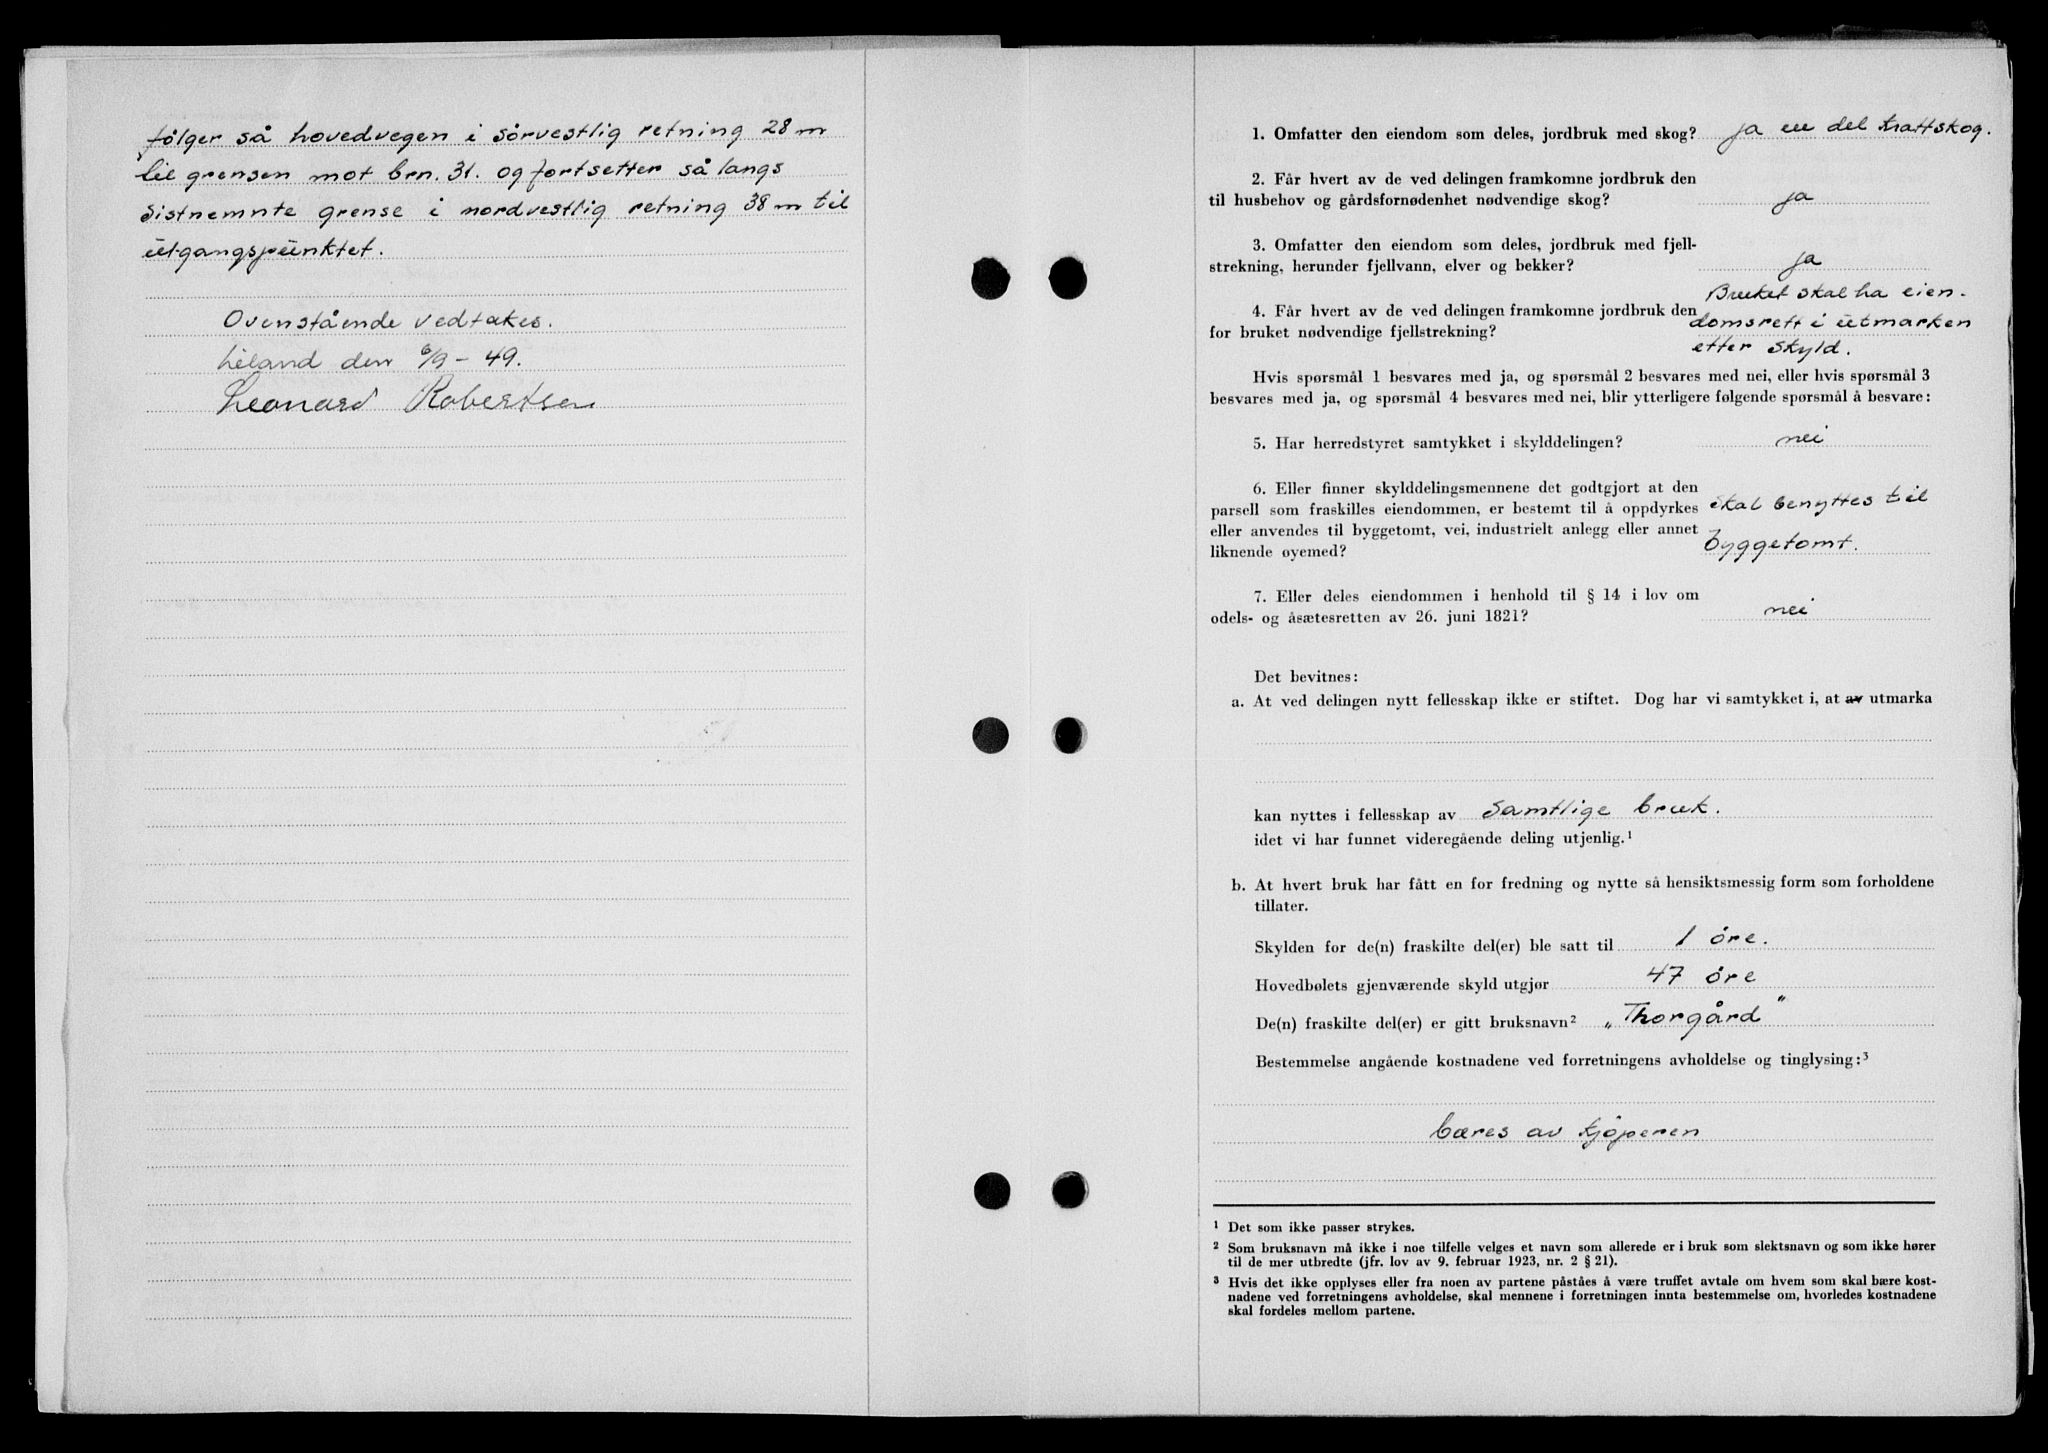 følger så hovedvegen i sørvestlig retning 28 m
til grensen mot brn. 31. og fortsetter så langs
sistnemnte grense i nordvestlig retning 38 m til
utgangspunktet.
Ovenstående vedtakes.
Leland den 6/9 - 49.
Leonard Robertsen
1. Omfatter den eiendom som deles, jordbruk med skog? ja en del krattskog.
2. Får hvert av de ved delingen framkomne jordbruk den
til husbehov og gårdsfornødenhet nødvendige skog? ja
3. Omfatter den eiendom som deles, jordbruk med fjell-
strekning, herunder fjellvann, elver og bekker? ja
Bruket skal ha eien-
4. Får hvert av de ved delingen framkomne jordbruk den domsrett i utmarken
for bruket nødvendige fjellstrekning? etter skyld.
Hvis spørsmål 1 besvares med ja, og spørsmål 2 besvares med nei, eller hvis spørsmål 3
besvares med ja, og spørsmål 4 besvares med nei, blir ytterligere følgende spørsmål å besvare:
5. Har herredstyret samtykket i skylddelingen? nei
6. Eller finner skylddelingsmennene det godtgjort at den
parsell som fraskilles eiendommen, er bestemt til å oppdyrkes skal benyttes til
eller anvendes til byggetomt, vei, industrielt anlegg eller annet
liknende øyemed? byggetomt.
7. Eller deles eiendommen i henhold til § 14 i lov om
odels- og åsætesretten av 26. juni 1821? nei
Det bevitnes:
a. At ved delingen nytt fellesskap ikke er stiftet. Dog har vi samtykket i, at av utmarka
kan nyttes i fellesskap av samtlige bruk.
idet vi har funnet videregående deling utjenlig.¹
b. At hvert bruk har fått en for fredning og nytte så hensiktsmessig form som forholdene
tillater.
Skylden for de(n) fraskilte del(er) ble satt til 1 øre.
Hovedbølets gjenværende skyld utgjør 47 øre
De(n) fraskilte del(er) er gitt bruksnavn² „Thorgård"
Bestemmelse angående kostnadene ved forretningens avholdelse og tinglysing:³
bæres av kjøperen
¹ Det som ikke passer strykes.
² Som bruksnavn må ikke i noe tilfelle velges et navn som allerede er i bruk som slektsnavn og som ikke hører
til de mer utbredte (jfr. lov av 9. februar 1923, nr. 2 § 21).
³ Hvis det ikke opplyses eller fra noen av partene påståes å være truffet avtale om hvem som skal bære kost-
nadene ved forretningens avholdelse, skal mennene i forretningen innta bestemmelse om, hvorledes kostnadene
skal fordeles mellom partene.